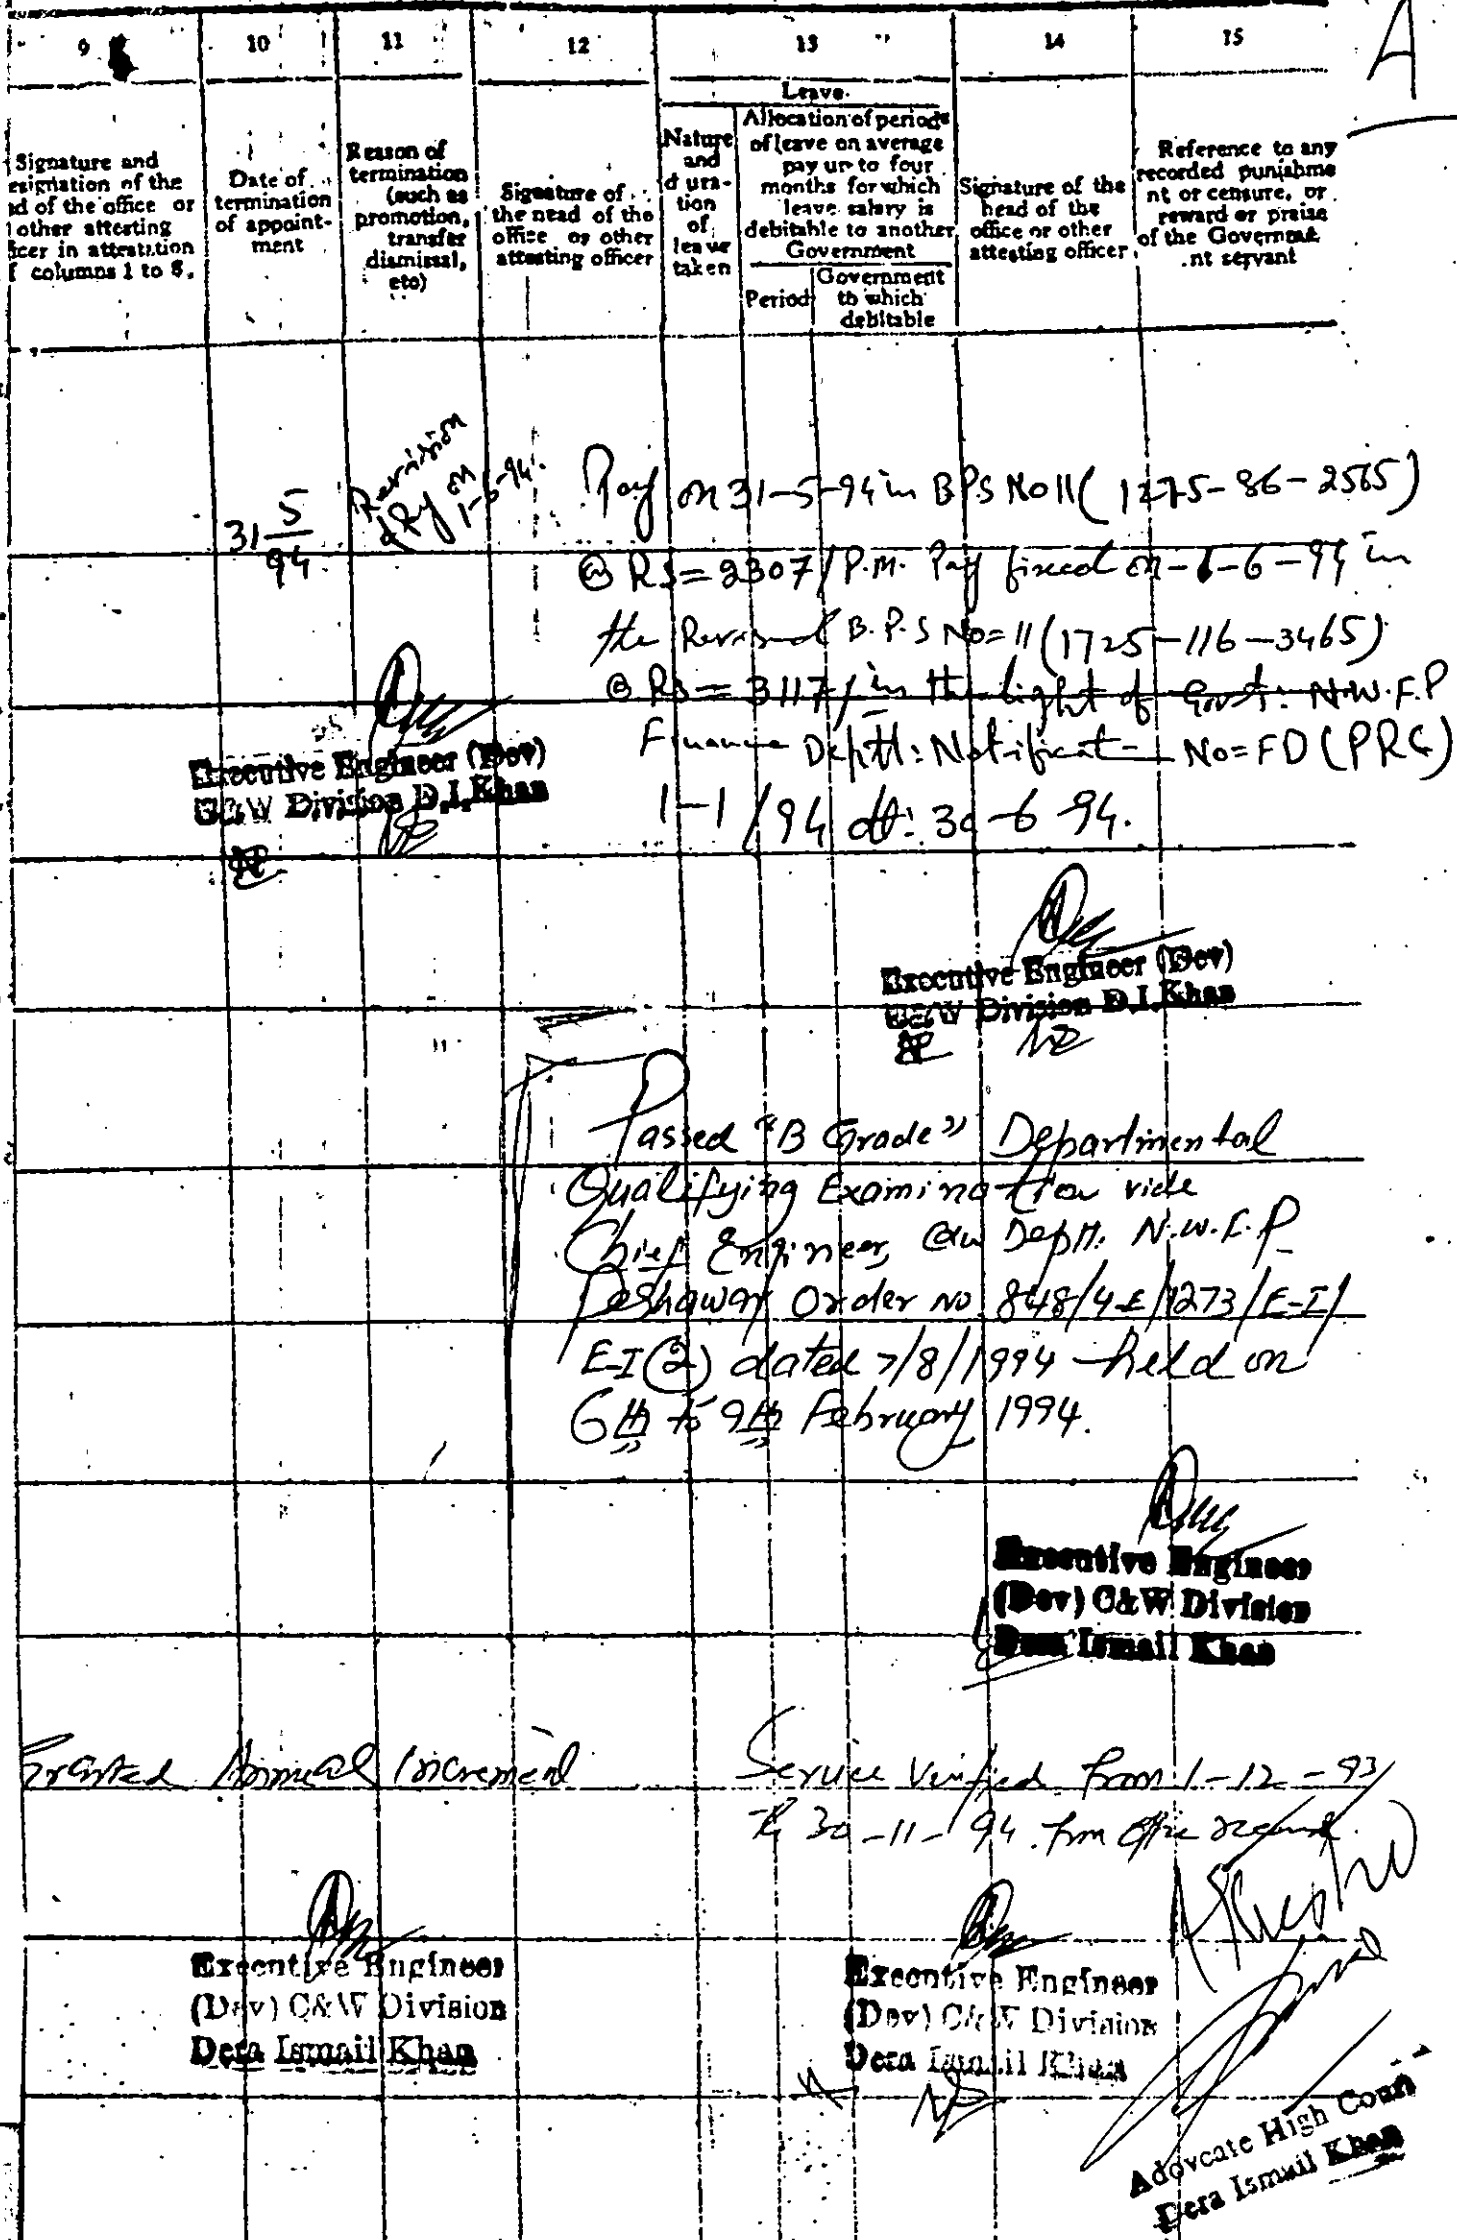 9 10 11 12 13 14 15
A
Signature and
esignation of the
ad of the office or
other attesting
icer in attestation
f columns 1 to 8.
Date of
termination
of appoint-
ment
Reason of
termination
(such as
promotion,
transfer
dismissal,
etc)
Signature of
the head of the
office or other
attesting officer
Leave
Nature
and
dura-
tion
of
leave
taken
Allocation of periods
of leave on average
pay up to four
months for which
leave salary is
debitable to another
Government
Period
Government
to which
debitable
Signature of the
head of the
office or other
attesting officer
Reference to any
recorded punishme
nt or censure, or
reward or praise
of the Governme
nt servant
31 5/94
Revision
of Pay on
1-6-94.
Pay on 31-5-94 in BPS No 11 (1275-86-2565)
@ Rs=2307/P.M. Pay fixed on 1-6-94 in
the Revised B.P.S No=11 (1725-116-3465)
@ Rs=3117/ in the light of Govt: N.W.F.P
Finance Deptt: Notification No=FD (PRC)
1-1/94 dt: 30-6-94.
Executive Engineer (Dev)
C&W Division D.I.Khan
Executive Engineer (Dev)
C&W Division D.I.Khan
Passed "B Grade" Departmental
Qualifying Examination vide
Chief Engineer, C&W Deptt. N.W.F.P
Peshawar Order No. 848/4-E/1273/E-I/
E-I(2) dated 7/8/1994 held on
6th to 9th February 1994.
Executive Engineer
(Dev) C&W Division
Dera Ismail Khan
Granted Annual Increment
Service Verified from 1-12-93
to 30-11-94 from office record.
Executive Engineer
(Dev) C&W Division
Dera Ismail Khan
Executive Engineer
(Dev) C&W Division
Dera Ismail Khan
Adovcate High Court
Dera Ismail Khan